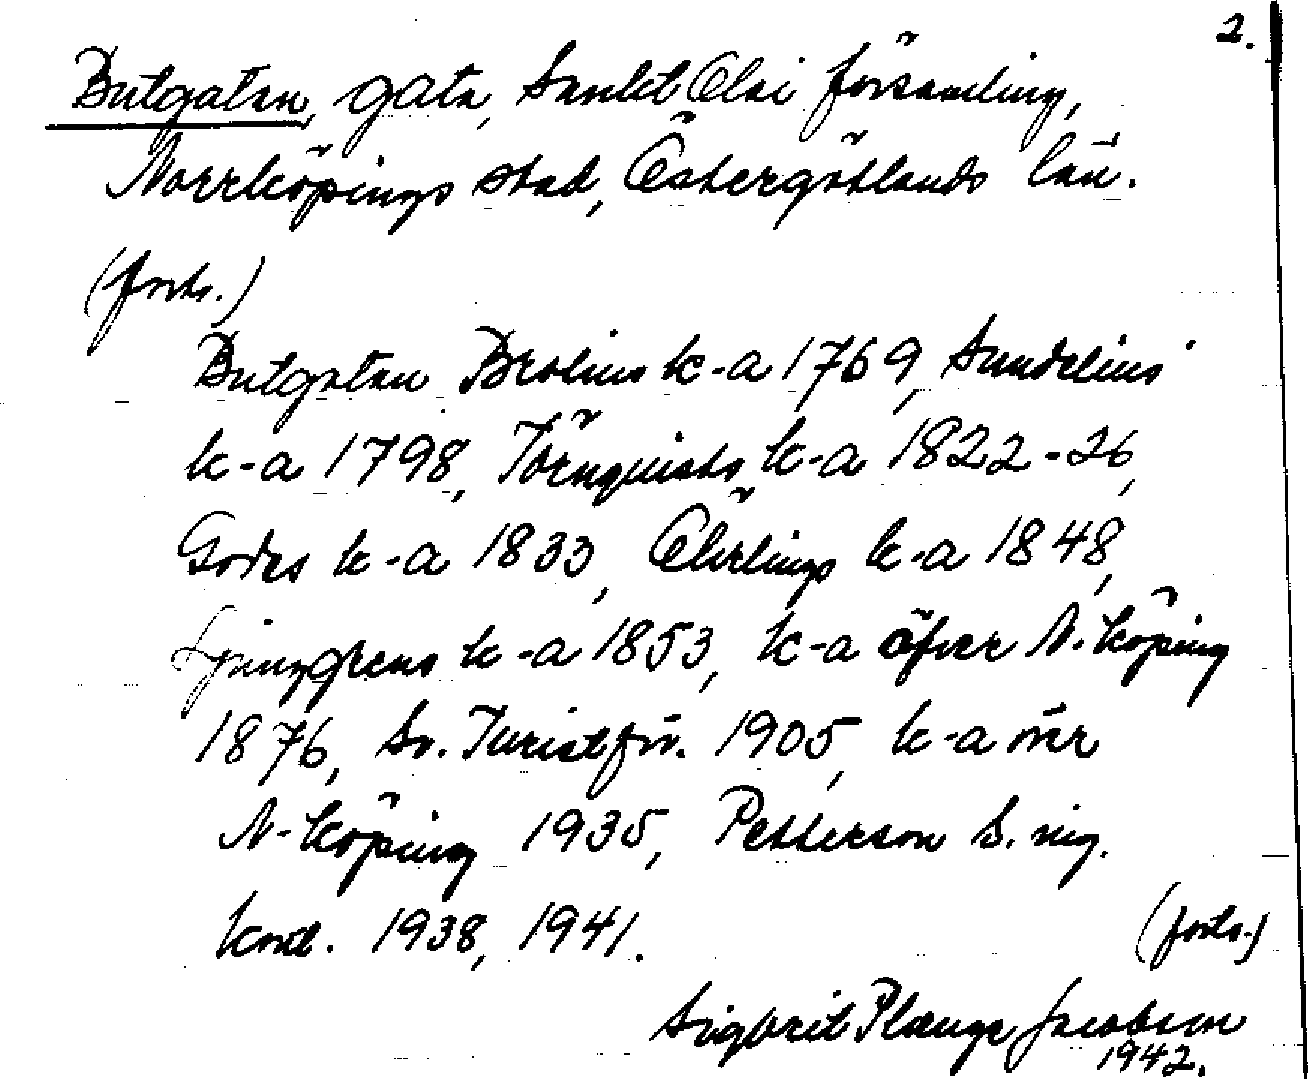 2.
Butgatan, gata, Sankt Olai församling,
Norrköpings stad, Östergötlands län.
(forts.)
Butgatan Brolins k-a 1769, Sundelius'
k-a 1798, Törnquists k-a 1822-26,
Godes k-a 1833, Öhrlings k-a 1848,
Ljunggrens k-a 1853, k-a öfver N-köping
1876, Sv. Turistför. 1905, k-a över
N-köping 1935, Petterson B. nig.
kord. 1938, 1941.
(forts.)
Sigbrit Plænge Jacobson
1942.